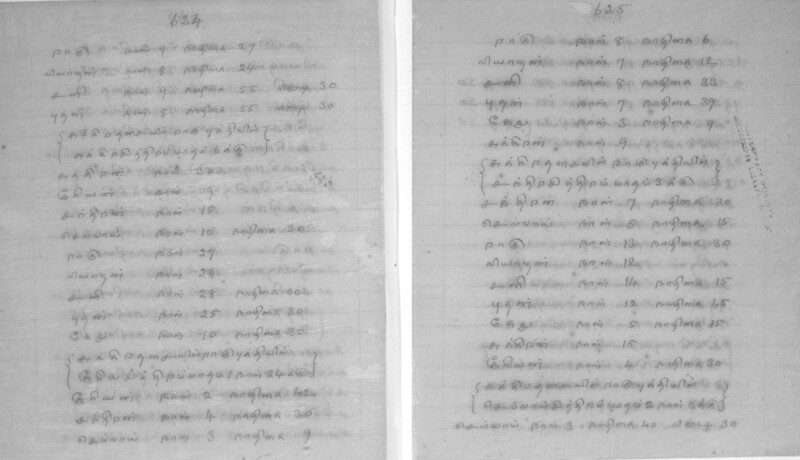 624
ராகு நாள் 9 நாழிகை 27
வியாழன் நாள் 8 நாழிகை 24
சனி நாள் 9 நாழிகை 55 வினாடி 30
புதன் நாள் 8 நாழிகை 55 வினாடி 30
சுக்கிரதசையில் ராகு புத்தியில்
சுக்கிரன் நாள் 30
சூரியன் நாள்
சந்திரன் நாள் 15
செவ்வாய் நாள் 10 நாழிகை 30
ராகு நாள் 27
வியாழன் நாள் 24
சனி நாள் 28 நாழிகை 30
புதன் நாள் 25 நாழிகை 30
கேது நாள் 10 நாழிகை 30
சுக்கிரதசையில் ராகு புத்தியில்
சூரியன் நாள் 2 நாழிகை 42
சந்திரன் நாள் 4 நாழிகை 30
செவ்வாய் நாள் 3 நாழிகை 9
625
ராகு நாள் 8 நாழிகை 6
வியாழன் நாள் 7 நாழிகை 12
சனி நாள் 8 நாழிகை 33
புதன் நாள் 7 நாழிகை 39
கேது நாள் 3 நாழிகை 9
சுக்கிரன் நாள் 9
சுக்கிரதசையில் ராகு புத்தியில்
சந்திரன் நாள் 7 நாழிகை 30
செவ்வாய் நாள் 5 நாழிகை 15
ராகு நாள் 13 நாழிகை 30
வியாழன் நாள் 12
சனி நாள் 14 நாழிகை 15
புதன் நாள் 12 நாழிகை 45
கேது நாள் 5 நாழிகை 15
சுக்கிரன் நாள் 15
சூரியன் நாள் 4 நாழிகை 30
சுக்கிரதசையில் ராகு புத்தியில்
செவ்வாய் நாள் 3 நாழிகை 40 வினாடி 30